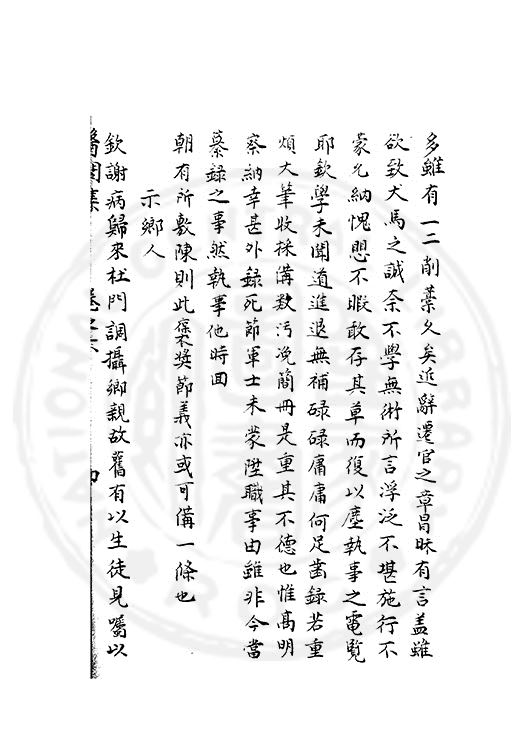 多雖有一二削藁久矣近辭遷官之章冒昧有言盖雖
欲效犬馬之誠奈不學無術所言浮泛不堪施行不
蒙允納愧恧不暇敢存其草而復以塵執事之電覧
耶欽學未聞道進退無補碌碌庸庸何足齒錄若重
煩大筆收採備數污浼簡冊是重其不德也惟髙明
察納幸甚外錄死節軍士未蒙陞職事由雖非今當
纂録之事然執事他時回
朝有所敷陳則此襃奬節義亦或可備一條也
示鄉人
欽謝病歸來杜門調攝鄉親故舊有以生徒見囑以
醫閭集
卷之六